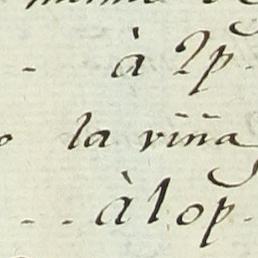 à 2p.
la viña
à lop.